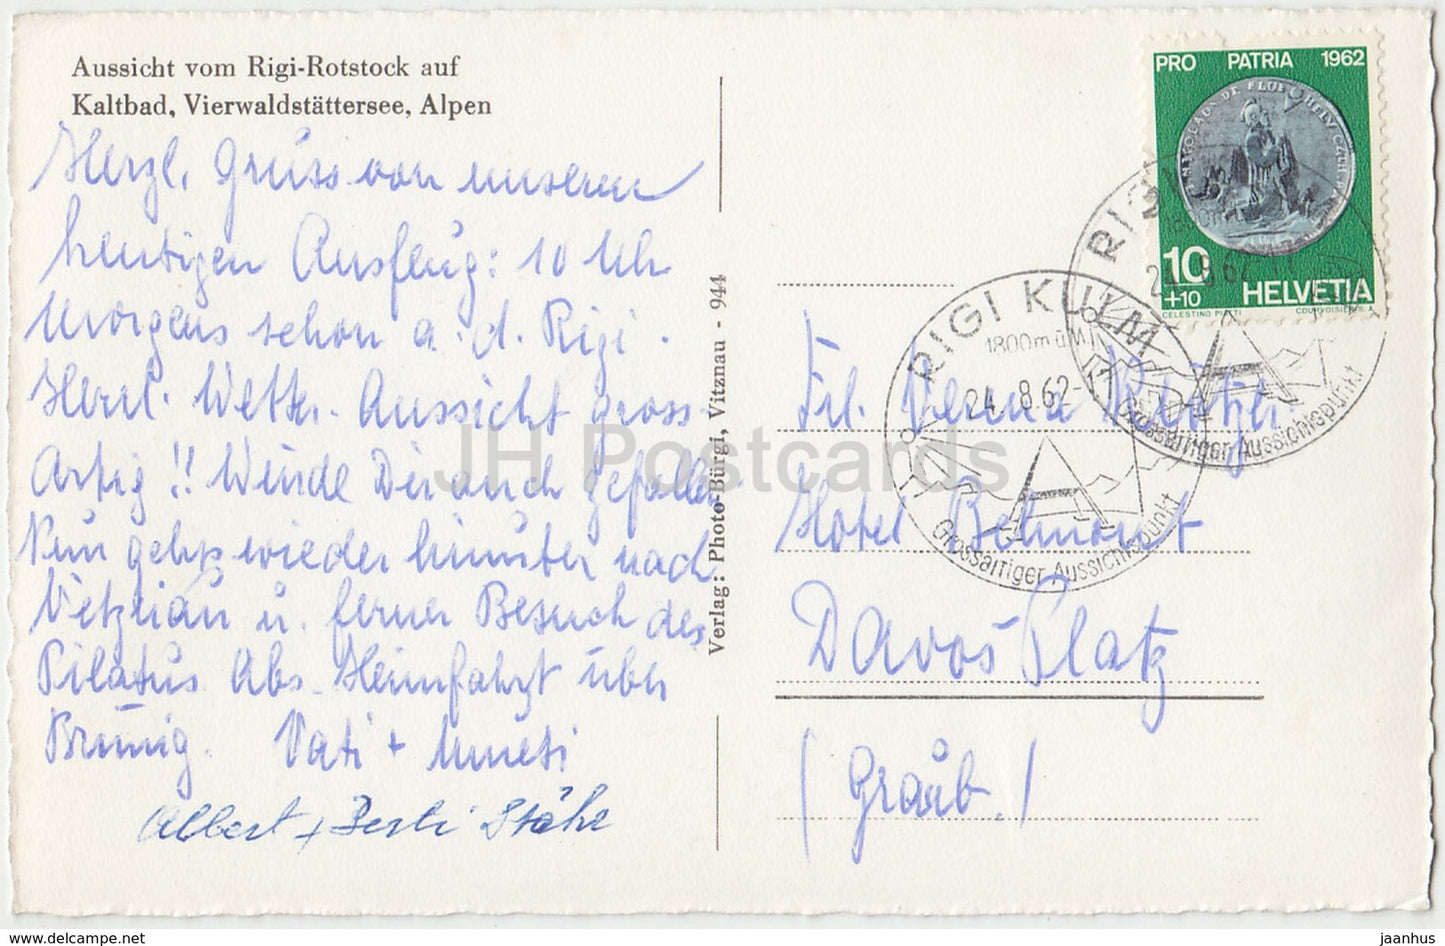 Aussicht vom Rigi-Rotstock auf
Kaltbad, Vierwaldstättersee, Alpen
Herzl. Grüss von unserem
heutigen Ausflug: 10 Uhr
Morgens schon a. d. Rigi.
Herrl. Wetter. Aussicht gross-
artig!! Würde Dir auch gefallen
Nun gehts wieder hinunter nach
Vitznau u. ferner Besuch des
Pilatus Abs. Heimfahrt über
Brünig. Vati + Mueti
Albert + Berti Stähr
Verlag: Photo-Bürgi, Vitznau - 944
PRO PATRIA 1962
10
+10 HELVETIA
COURVOISIER S.A.
RIGI KULM
1800m ü.M.
24.8.62-
Grossartiger Aussichtspunkt
RIGI
24.8.62
Grossartiger Aussichtspunkt
Frl. Verena
Hotel Belmont
Davos-Platz
(Graub.)
JH Postcards
www.delcampe.net
jaanhus